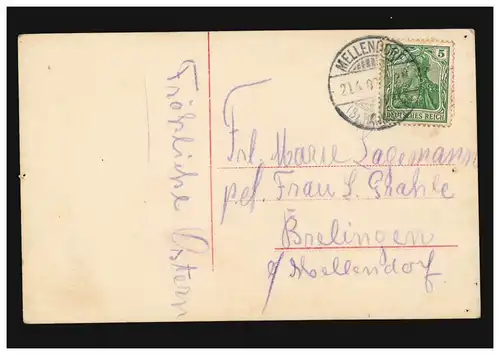 Fröhliche Ostern
MELLENDORF
21.4.0
5
DEUTSCHES REICH
Frl. Marie Lagemann
Frau L. Grahle
Brelingen
b/Mellendorf